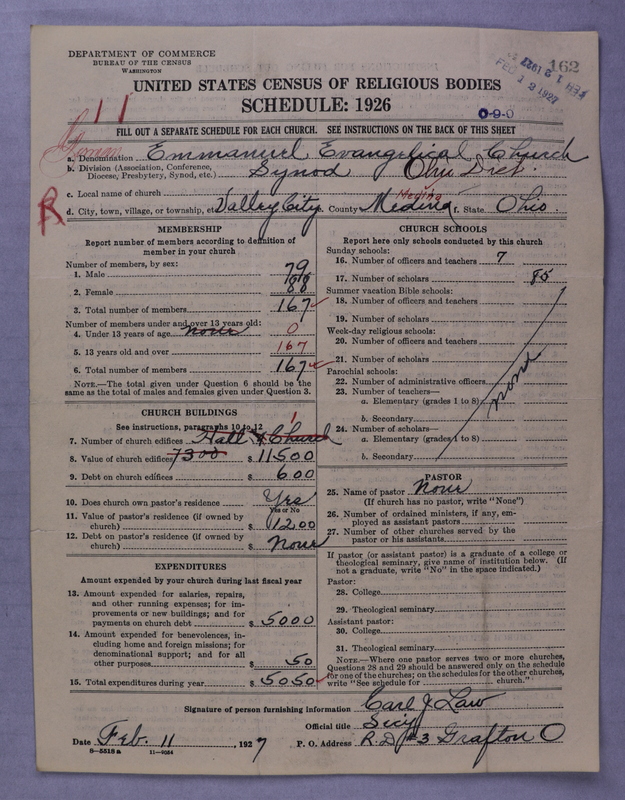 DEPARTMENT OF COMMERCE
BUREAU OF THE CENSUS
WASHINGTON
162
FEB 12 1927
UNITED STATES CENSUS OF RELIGIOUS BODIES
SCHEDULE: 1926
11
0-9-0
FILL OUT A SEPARATE SCHEDULE FOR EACH CHURCH. SEE INSTRUCTIONS ON THE BACK OF THIS SHEET
a. Denomination Emmanuel Evangelical Church
b. Division (Association, Conference, Diocese, Presbytery, Synod, etc.) Synod Ohio Dist.
c. Local name of church
R
d. City, town, village, or township, etc. Valley City e. County Medina Medina f. State Ohio
MEMBERSHIP
Report number of members according to definition of
member in your church
Number of members, by sex:
1. Male 79
2. Female 88
3. Total number of members 167
Number of members under and over 13 years old:
4. Under 13 years of age none 0
5. 13 years old and over 167
6. Total number of members 167
NOTE.—The total given under Question 6 should be the
same as the total of males and females given under Question 3.
CHURCH BUILDINGS
See instructions, paragraphs 10 to 12
7. Number of church edifices Hall & Church 1
8. Value of church edifices 7300 $ 11500
9. Debt on church edifices $ 600
10. Does church own pastor's residence Yes
Yes or No
11. Value of pastor's residence (if owned by
church) $ 1200
12. Debt on pastor's residence (if owned by
church) $ None
EXPENDITURES
Amount expended by your church during last fiscal year
13. Amount expended for salaries, repairs,
and other running expenses; for im-
provements or new buildings; and for
payments on church debt $ 5000
14. Amount expended for benevolences, in-
cluding home and foreign missions; for
denominational support; and for all
other purposes $ 50
15. Total expenditures during year $ 5050
CHURCH SCHOOLS
Report here only schools conducted by this church
Sunday schools:
16. Number of officers and teachers 7
17. Number of scholars 85
Summer vacation Bible schools:
18. Number of officers and teachers
19. Number of scholars
Week-day religious schools:
20. Number of officers and teachers
21. Number of scholars
Parochial schools:
22. Number of administrative officers
23. Number of teachers—
a. Elementary (grades 1 to 8)
b. Secondary
24. Number of scholars—
a. Elementary (grades 1 to 8)
b. Secondary
none
PASTOR
25. Name of pastor None
(If church has no pastor, write "None")
26. Number of ordained ministers, if any, em-
ployed as assistant pastors
27. Number of other churches served by the
pastor or his assistants
If pastor (or assistant pastor) is a graduate of a college or
theological seminary, give name of institution below. (If
not a graduate, write "No" in the space indicated.)
Pastor:
28. College
29. Theological seminary
Assistant pastor:
30. College
31. Theological seminary
NOTE.—Where one pastor serves two or more churches,
Questions 28 and 29 should be answered only on the schedule
for one of the churches; on the schedules for the other churches,
write "See schedule for church."
Signature of person furnishing information Carl J Law
Official title Secy
Date Feb. 11, 1927 P. O. Address R. D. #3 Grafton O
8—5518 a 11—9064